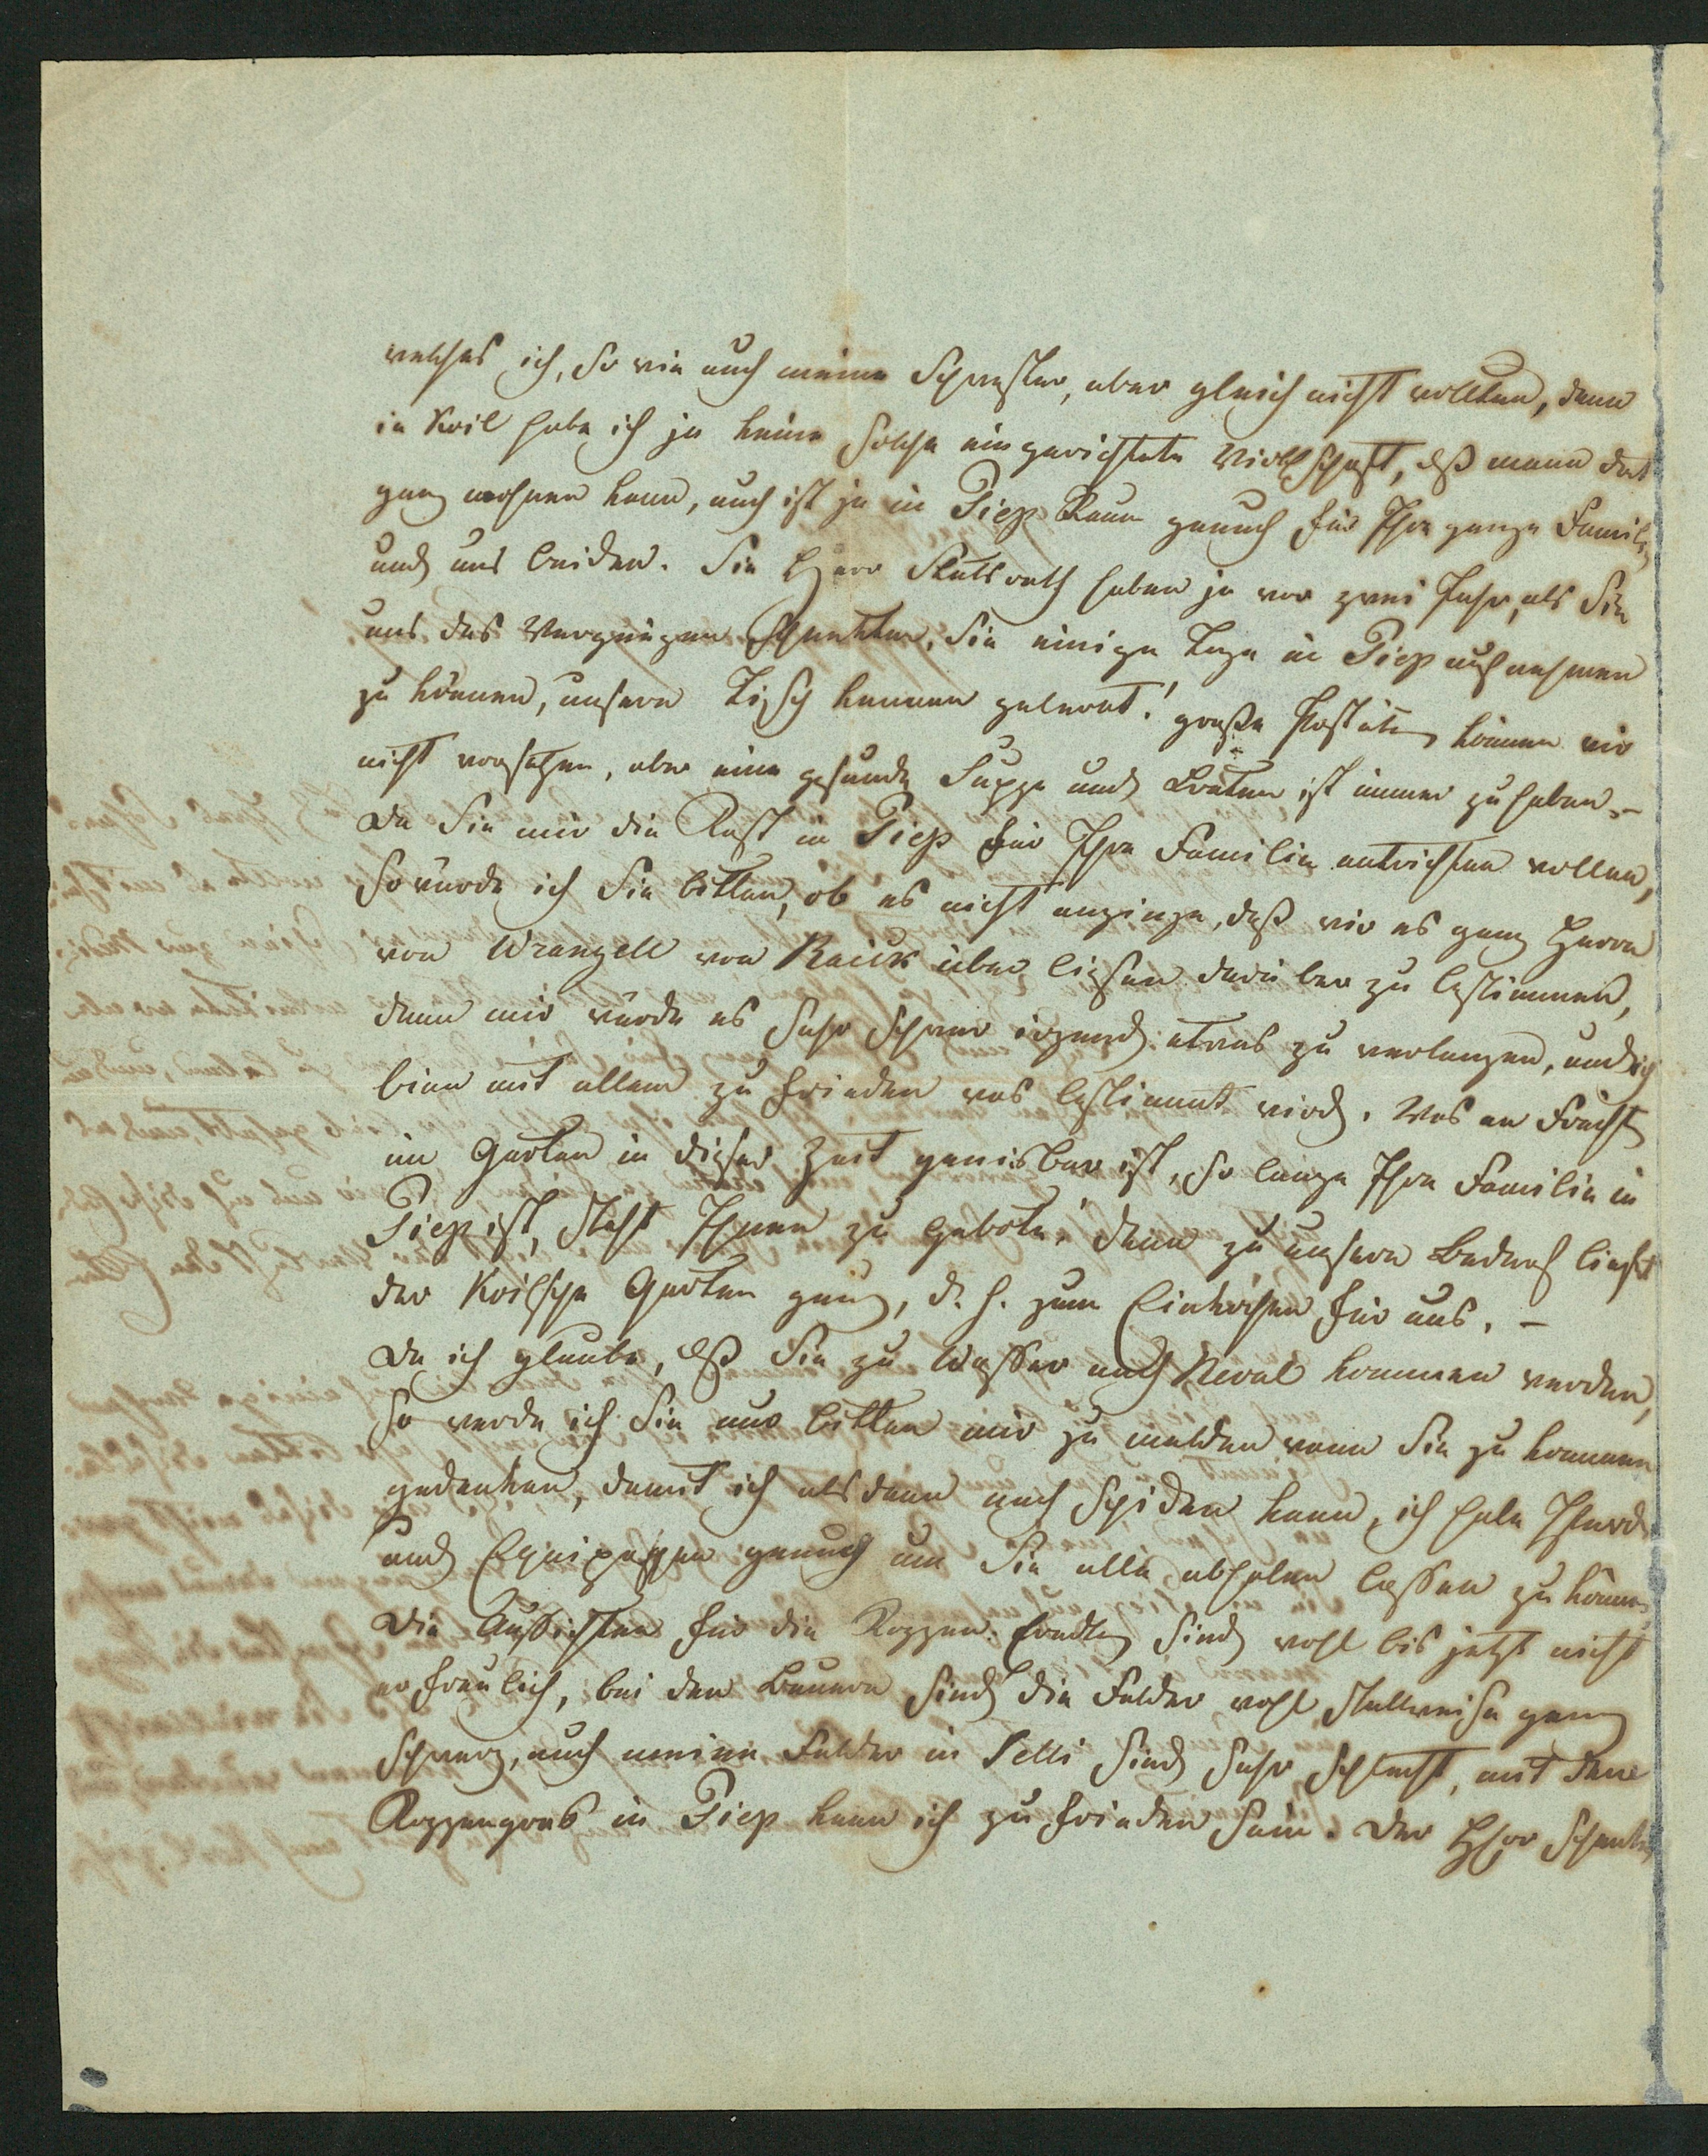 welches ich, so wie auch meine Schwester, aber gleich nicht wollten, denn
in Koil habe ich ja keine solche eingerichtete Wirthschaft, daß mann dort
ganz wohnen kann, auch ist ja in Piep Raum genuch für Ihre ganze Famili,
und uns beiden. Sie Herr Statsrath haben ja vor zwei Jahr, als Sie
uns das Vergnügen schenkten, Sie einige Tage in Piep aufnehmen
zu können, unsern Tisch kennen gelernt! große können wir
nicht vorsetzen, aber eine gesunde Suppe und Braten ist immer zu haben. –
Da Sie mir die Kost in Piep für Ihre Familie entrichten wollen,
so würde ich Sie bitten, ob es nicht anginge, daß wir es ganz Herrn
von Wrangell von Raick über ließen darüber zu bestimmen,
denn mir würde es sehr schwer irgend etwas zu verlangen, und ich
binn mit allem zu frieden was bestimmt wird. Was an Frücht
im Garten in dieser Zeit genisbar ist, so lange Ihre Familie in
Piep ist, steht Ihnen zu Gebote! denn zu unsern Bedarf liefert
der Koilsche Garten genug, d. h. zum Einkochen für uns. –
Da ich glaube, daß Sie zu Wasser nach Reval kommen werden,
so werde ich Sie nur bitten mir zu melden wenn Sie zu kommen
gedenken, damit ich als dann nach schiken kann, ich habe Pferde
und Equipagen genuch um Sie alle abholen lassen zu können,
Die Aussichten für die Roggen Erndte sind wohl bis jetzt nicht
erfreulich, bei den Bauern sind die Felder wohl stellweise ganz
schwarz, auch meine Felder in Selli sind sehr schlecht, mit dem
Roggengras in Piep kann ich zu frieden sein. Der Herr schenke